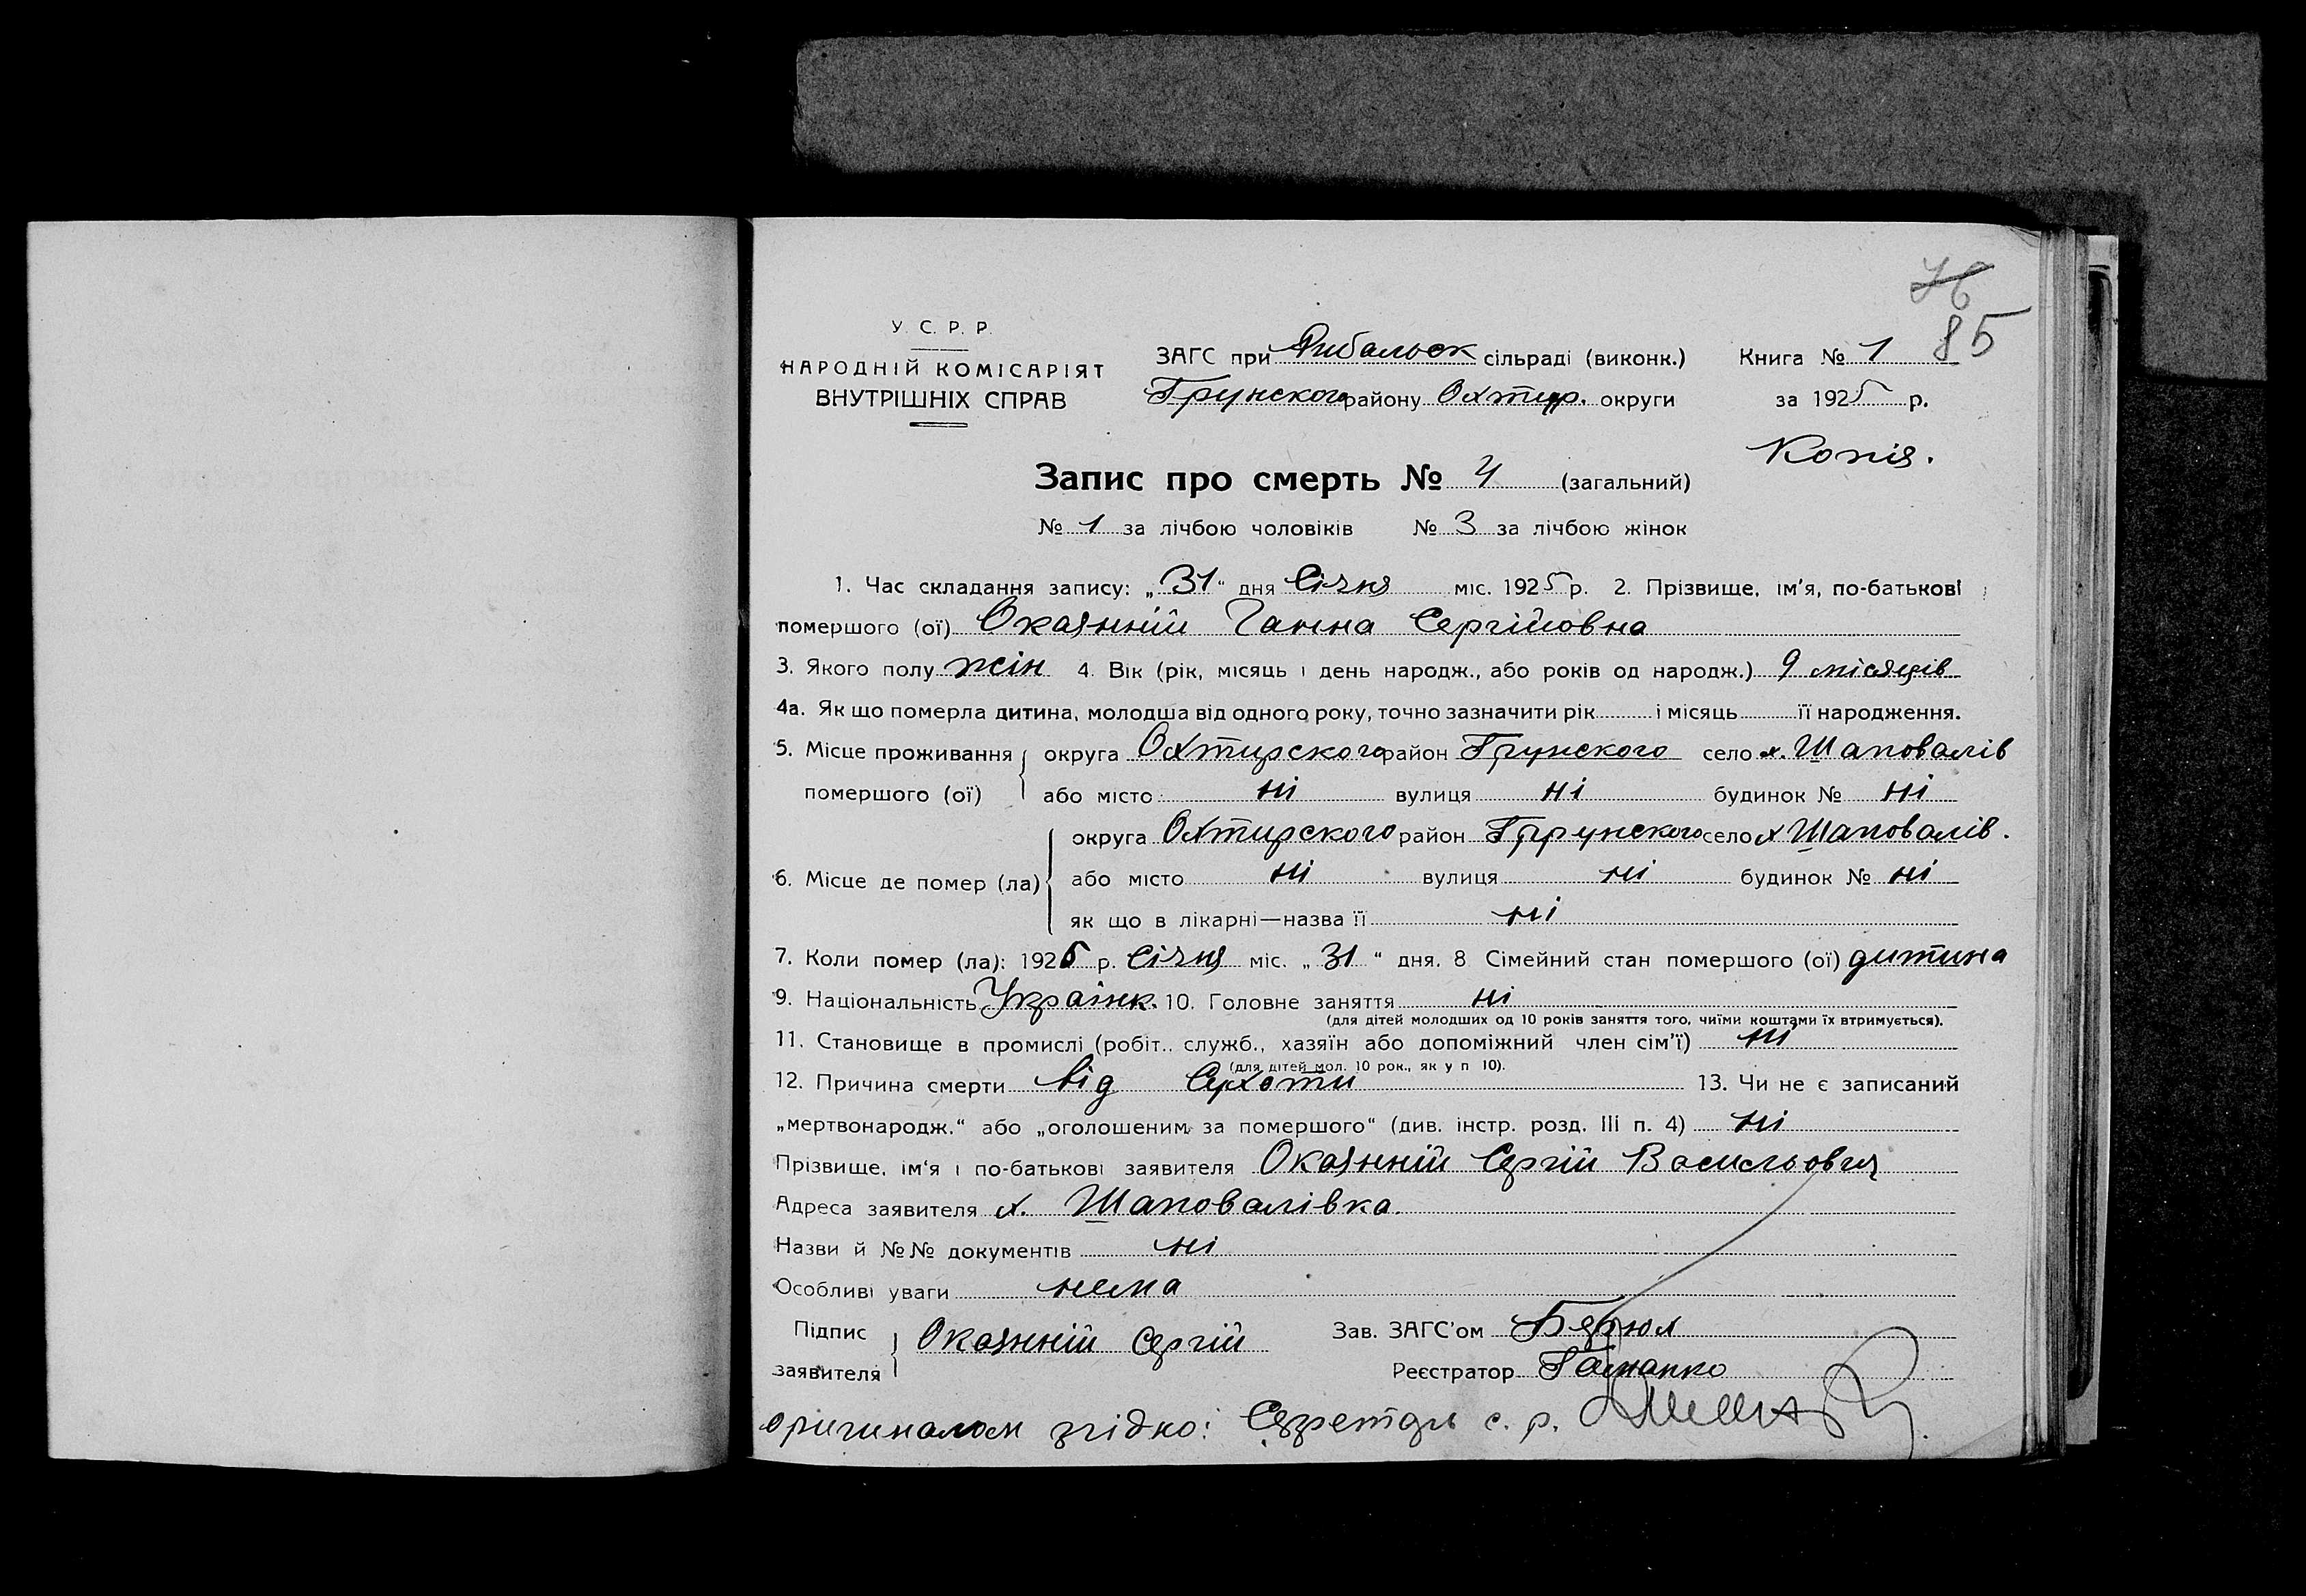 76
85
У. С. Р. Р.
НАРОДНІЙ КОМІСАРІЯТ
ВНУТРІШНІХ СПРАВ
ЗАГС при Рибальськ сільраді (виконк.) Книга № 1
Грунского району Охтир. округи за 1925 р.
Копія.
Запис про смерть № 4 (загальний)
№ 1 за лічбою чоловіків № 3 за лічбою жінок
1. Час складання запису: „31“ дня Січня міс. 1925 р. 2. Прізвище, ім'я, по-батькові
помершого (ої) Окаянній Ганна Сергійовна
3. Якого полу жін 4. Вік (рік, місяць і день народж., або років од народж.) 9 місяців
4а. Як що померла дитина, молодша від одного року, точно зазначити рік і місяць її народження.
5. Місце проживання округа Охтирского район Грунского село х. Шаповалів
помершого (ої) або місто ні вулиця ні будинок № ні
округа Охтирского район Грунского село х Шаповалів.
6. Місце де помер (ла) або місто ні вулиця ні будинок № ні
як що в лікарні—назва її ні
7. Коли помер (ла): 1925 р. Січня міс. „31“ дня. 8 Сімейний стан помершого (ої) дитина
9. Національність Українк. 10. Головне заняття ні
(для дітей молодших од 10 років заняття того, чиїми коштами їх втримується).
11. Становище в промислі (робіт., служб., хазяїн або допоміжний член сім'ї) ні
(для дітей мол. 10 рок., як у п 10).
12. Причина смерти від Сухоти 13. Чи не є записаний
„мертвонародж.“ або „оголошеним за помершого“ (див. інстр. розд. III п. 4) ні
Прізвище, ім'я і по-батькові заявителя Окаянній Сергій Васильович
Адреса заявителя х. Шаповалівка.
Назви й №№ документів ні
Особливі уваги нема
Підпис заявителя Окаянній Сергій Зав. ЗАГС'ом
Реєстратор
оригиналом згідно: Секретарь с. р.